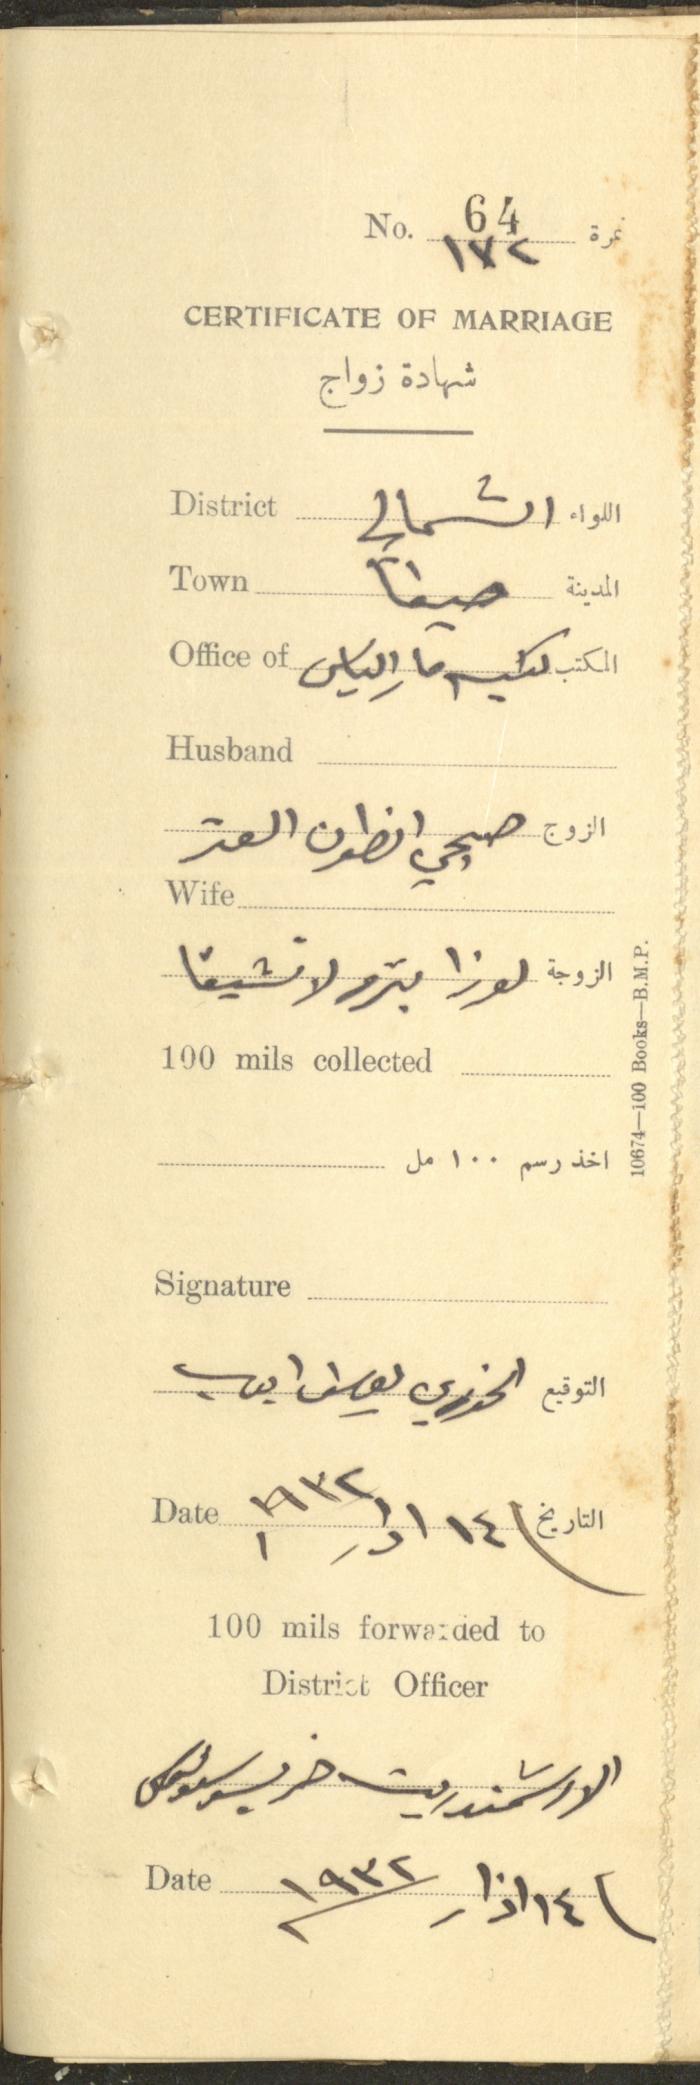 No. 64 نمرة
١٧٢
CERTIFICATE OF MARRIAGE
شهادة زواج
District الشمالي اللواء
Town حيفا المدينة
Office of لكنيسة مار الياس المكتب
Husband
الزوج صبحي انطون العتر
Wife
الزوجة لورزا بترو لاتشيفا
100 mils collected
اخذ رسم ١٠٠ مل
10674—100 Books—B.M.P.
Signature
التوقيع الخوري يوسف ايوب
Date ١٤ اذار ١٩٣٢ التاريخ
100 mils forwarded to
District Officer
الارشمندريت
Date ١٤ اذار ١٩٣٢